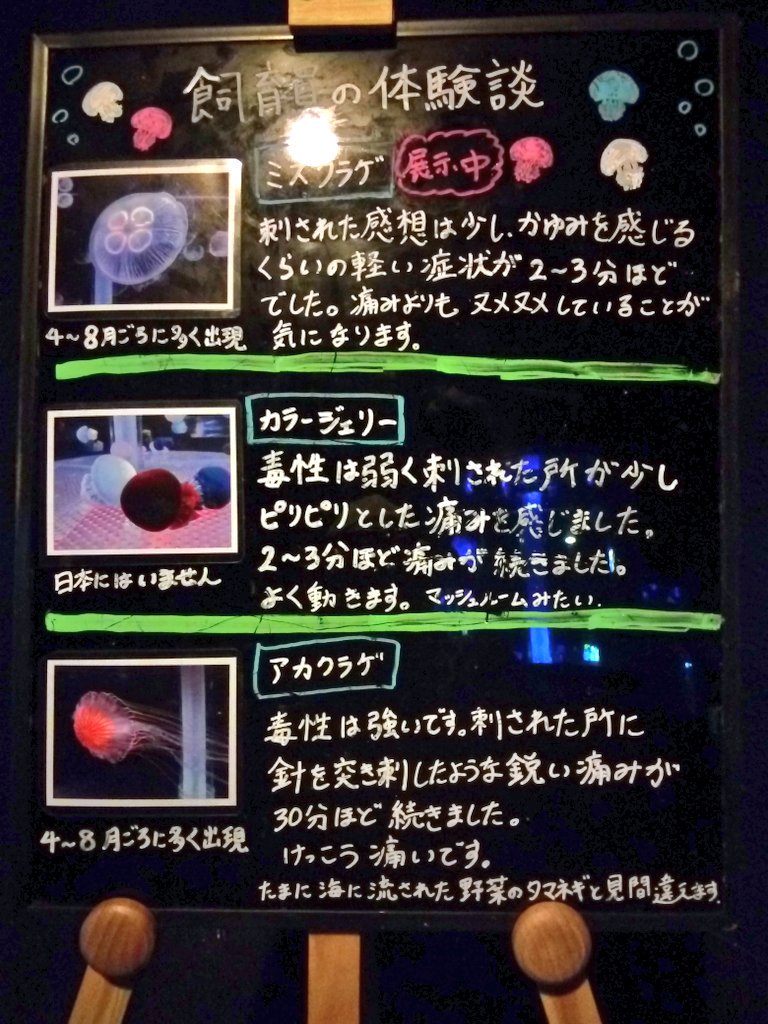 飼育の体験談
ミズクラゲ
展示中
刺された感想は少し、かゆみを感じる
くらいの軽い症状が2～3分ほど
でした。痛みよりも ヌメヌメしていることが
気になります。
4～8月ごろに多く出現
カラージェリー
毒性は弱く刺された所が少し
ピリピリとした痛みを感じました。
2～3分ほど痛みが続きました。
よく動きます。 マッシュルームみたい.
日本にはいません
アカクラゲ
毒性は強いです。刺された所に
針を突き刺したような鋭い痛みが
30分ほど続きました。
けっこう痛いです。
たまに海に流された野菜のタマネギと見間違えます.
4～8月ごろに多く出現